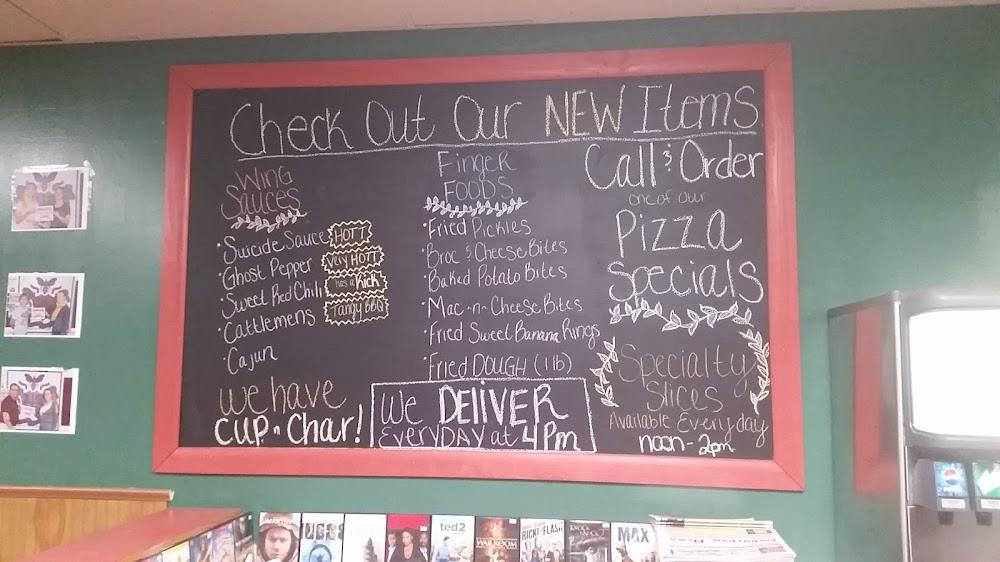 Check Out Our NEW Items
WING
Sauces
·Suicide Sauce HOTT
·Ghost Pepper Very HOTT
·Sweet Red Chili has a Kick
·Cattlemens Tangy BBQ
·Cajun
we have
CUP n Char!
Finger
FOODS
·Fried Pickles
·Broc & Cheese Bites
·Baked Potato Bites
·Mac-n-Cheese Bites
·Fried Sweet Banana Rings
·Fried DOUGH (1lb)
We DELIVER
EVERYDAY at 4pm
Call & Order
one of our
Pizza
Specials
Specialty
Slices
Available Everyday
noon-2pm
ted2
WAR ROOM
RICKI AND THE FLASH
MAX